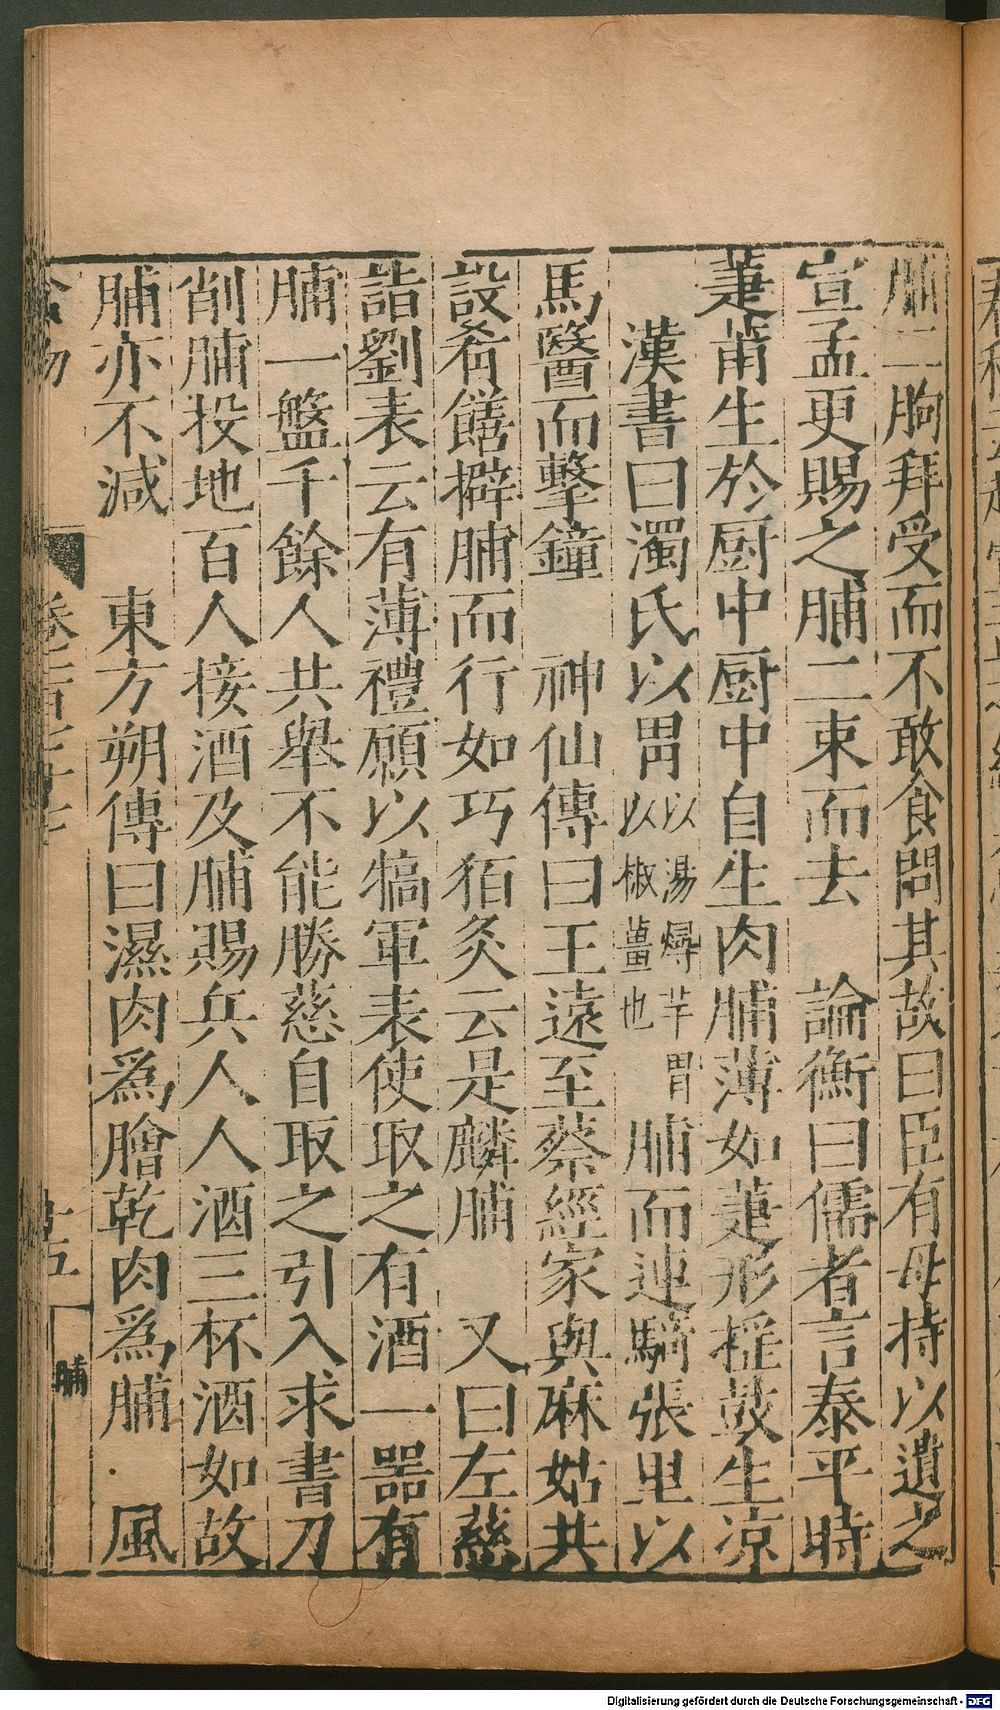 脯二朐拜受而不敢食問其故曰臣有母持以遺之
宣孟更賜之脯二束而去　論衡曰儒者言泰平時
萐莆生於厨中厨中自生肉脯薄如萐形揺鼓生凉
漢書曰濁氏以胃以湯燖羊胃以椒薑也脯而連騎張里以
馬醫而擊鐘　神仙傳曰王遠至蔡經家與麻姑共
設肴饍擗脯而行如巧𤞟炙云是麟脯　又曰左慈
詣劉表云有薄禮願以犒軍表使取之有酒一器有
脯一盤千餘人共舉不能勝慈自取之引入求書刀
削脯投地百人接酒及脯賜兵人人酒三杯酒如故
脯亦不減　東方朔傳曰濕肉為膾乾肉為脯．風
食物　卷二百
十五　脯
Digitalisierung gefördert durch die Deutsche Forschungsgemeinschaft - DFG